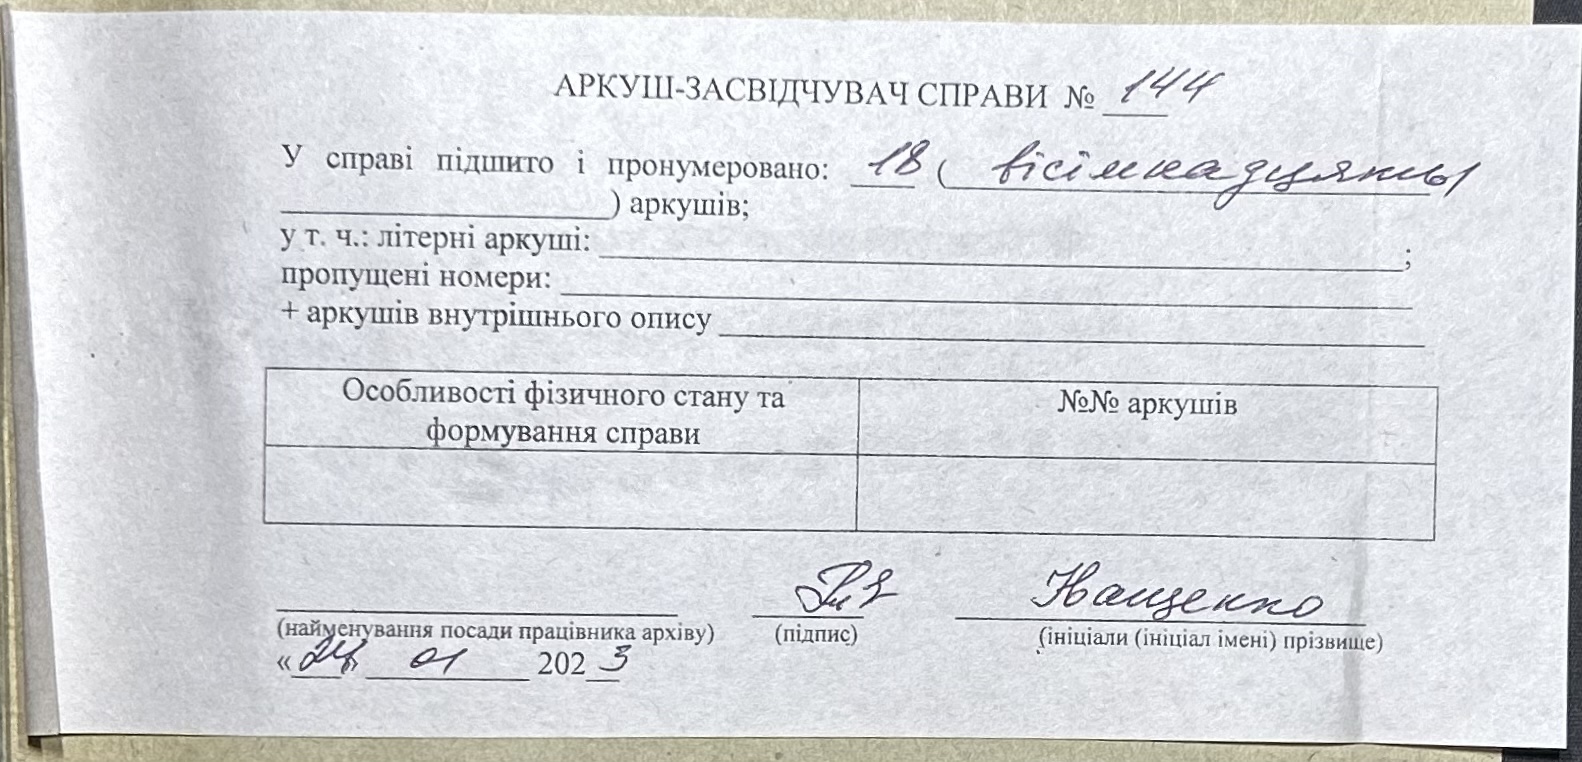 АРКУШ-ЗАСВІДЧУВАЧ СПРАВИ № 144
У справі підшито і пронумеровано: 18 ( вісімнадцять
) аркушів;
у т. ч.: літерні аркуші: ;
пропущені номери:
+ аркушів внутрішнього опису
Особливості фізичного стану та
формування справи
№№ аркушів
(найменування посади працівника архіву) (підпис) (ініціали (ініціал імені) прізвище)
« » 01 2023